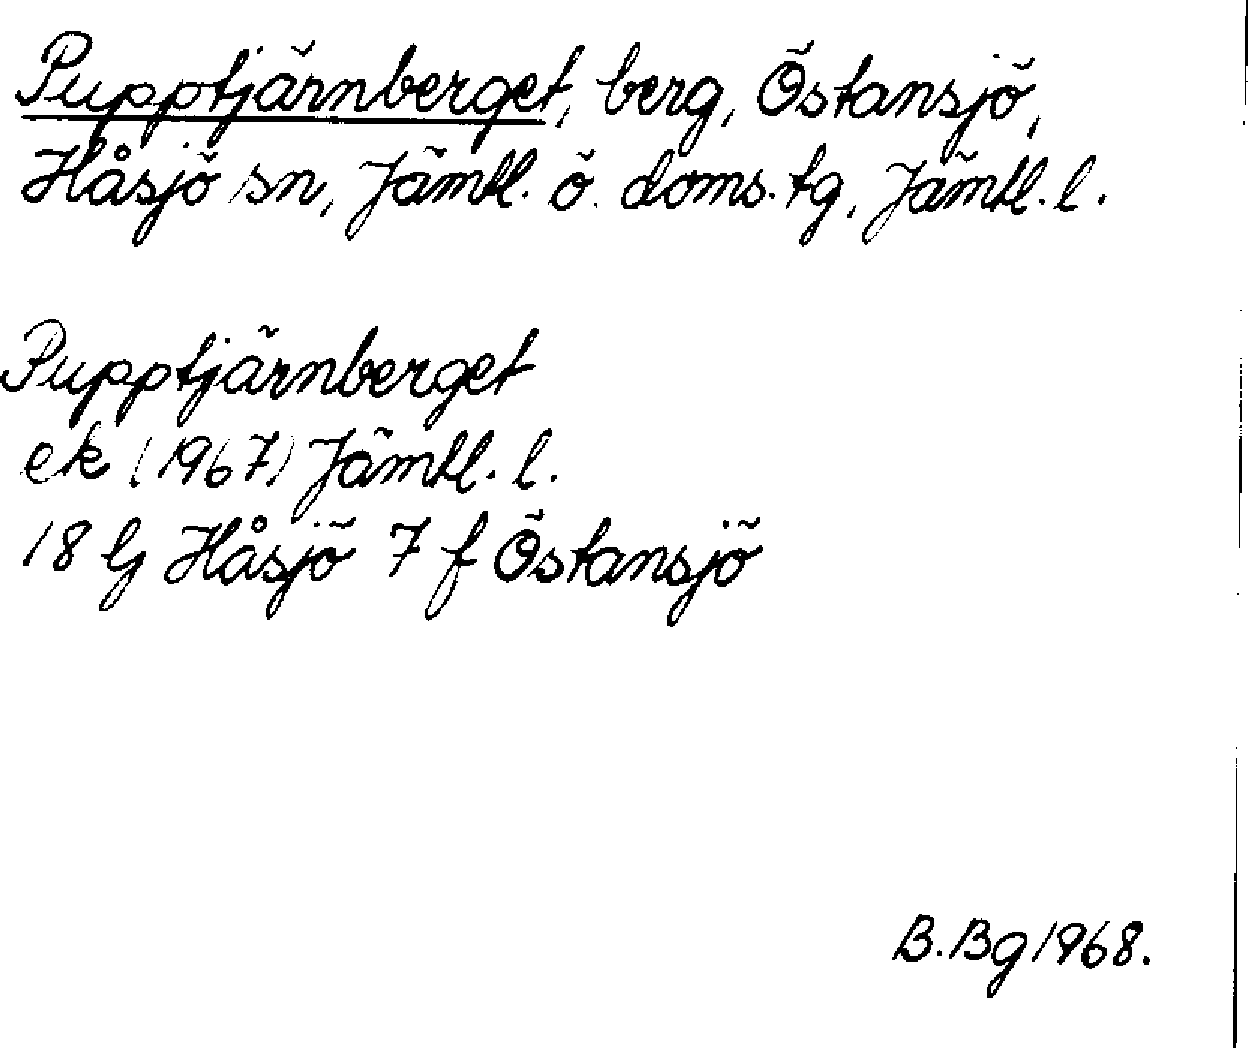 Pupptjärnberget, berg, Östansjö,
Håsjö sn, Jämtl. ö. doms. tg, Jämtl. l.
Pupptjärnberget
ek (1967) Jämtl. l.
18 G Håsjö 7 f Östansjö
B.Bg 1968.